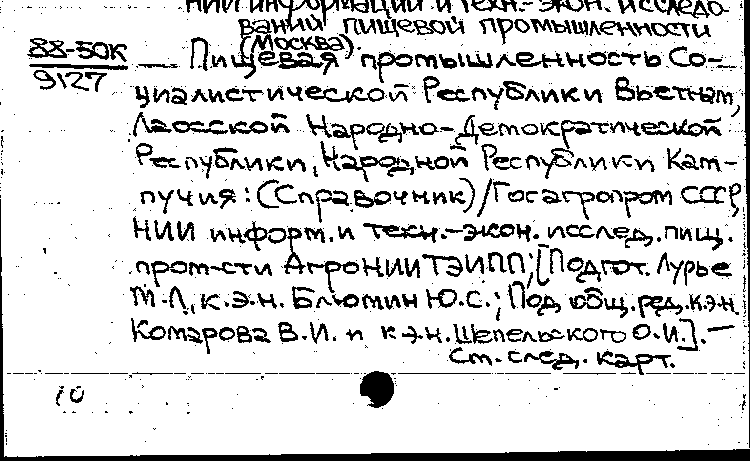 НИИ информации и техн.-экон. исследо-
ваний пищевой промышленности
(Москва)
88-50К
9127
— Пищевая промышленность Со-
циалистической Республики Вьетнам,
Лаосской Народно-Демократической
Республики, Народной Республики Кам-
пучия: (Справочник)/Госагропром СССР,
НИИ информ. и техн.-экон. исслед. пищ.
пром-сти АгроНИИТЭИПП; [Подгот. Лурье
М.Л., к.э.н. Блюмин Ю.С.; Под общ. ред. к.э.н.
Комарова В.И. и к.э.н. Шепельского О.И.]. —
См. след. карт.
10